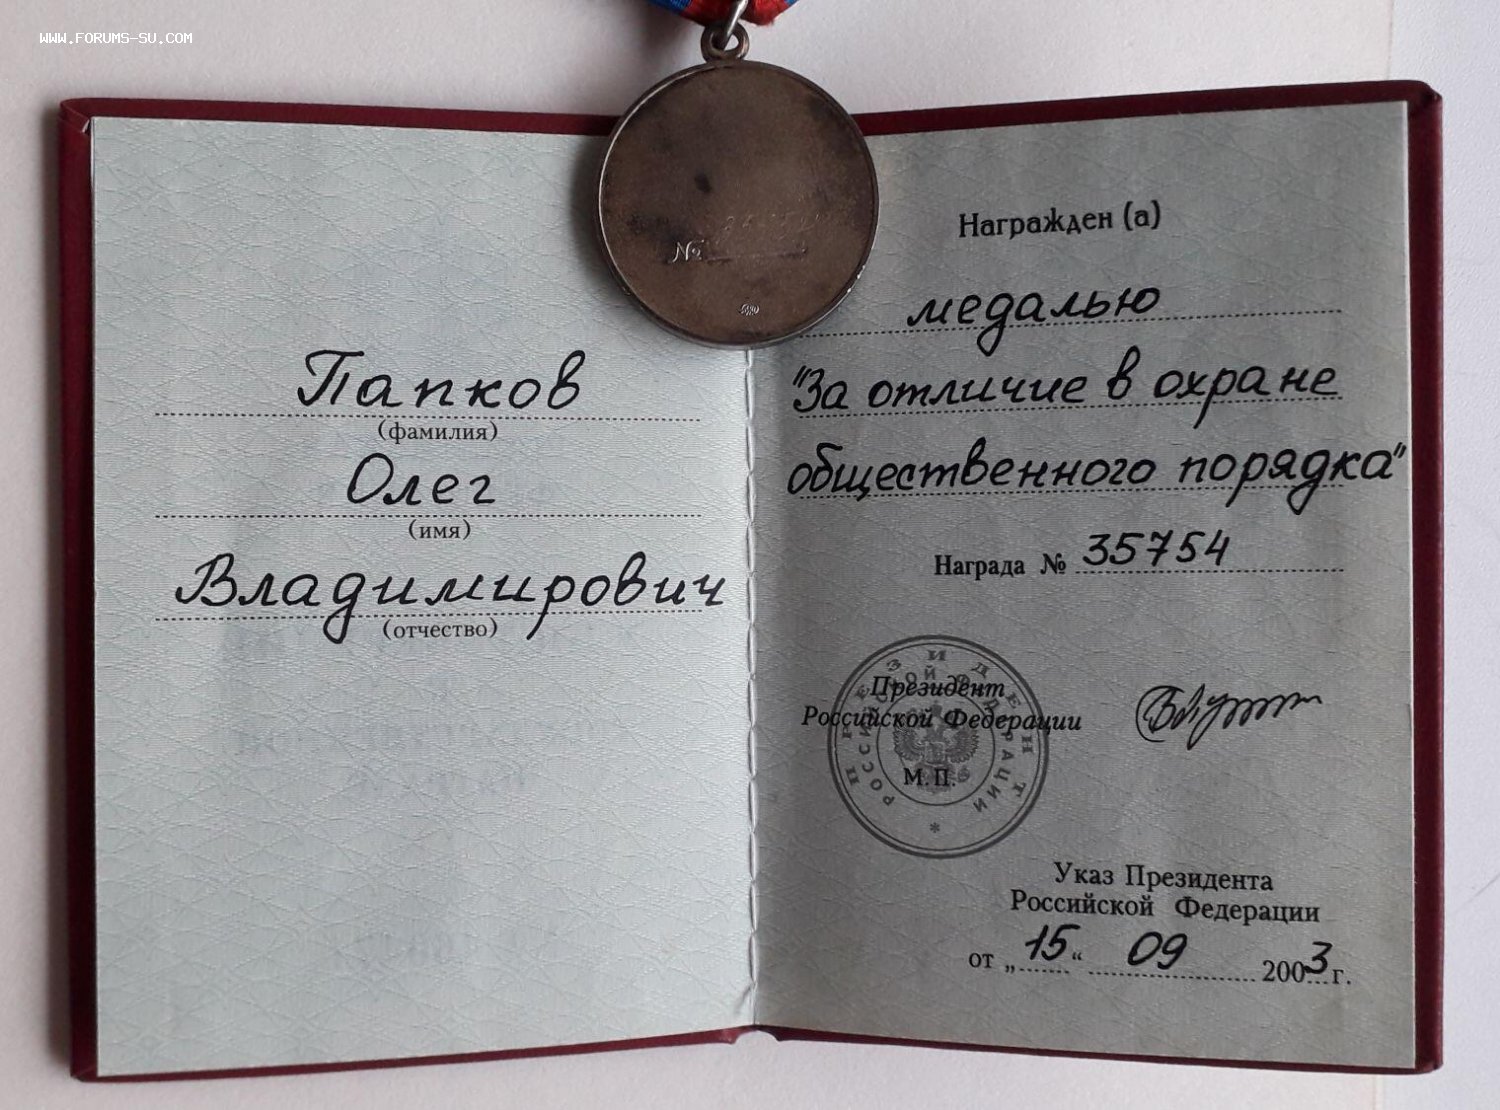 WWW.FORUMS-SU.COM
№
Папков
(фамилия)
Олег
(имя)
Владимирович
(отчество)
Награжден (а)
медалью
"За отличие в охране
общественного порядка"
Награда № 35754
ПРЕЗИДЕНТ
РОССИЙСКОЙ ФЕДЕРАЦИИ
Президент
Российской Федерации
М.П.
Указ Президента
Российской Федерации
от „15“ 09 2003 г.